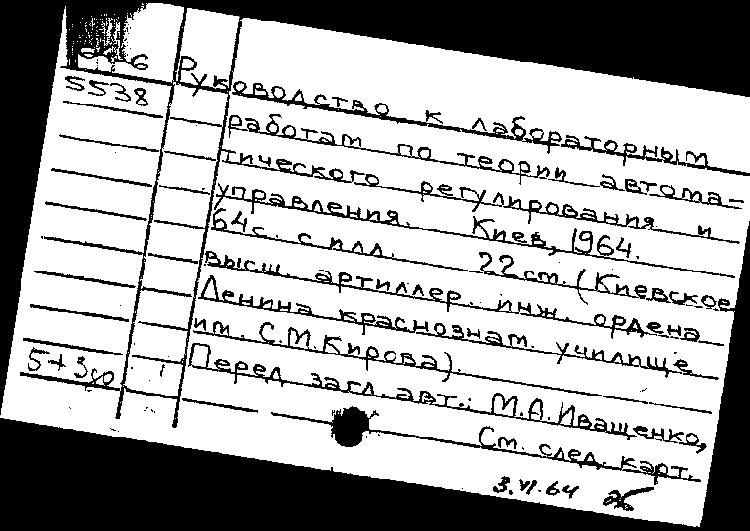 Руководство к лабораторным
5538
работам по теории автома-
тического регулирования и
управления. Киев, 1964.
64с. с илл. 22 см. (Киевское
высш. артиллер. инж. ордена
Ленина краснознам. училище
им. С.М.Кирова).
Перед загл. авт.: М.А.Иващенко,
См. след. карт.
3.VI.64